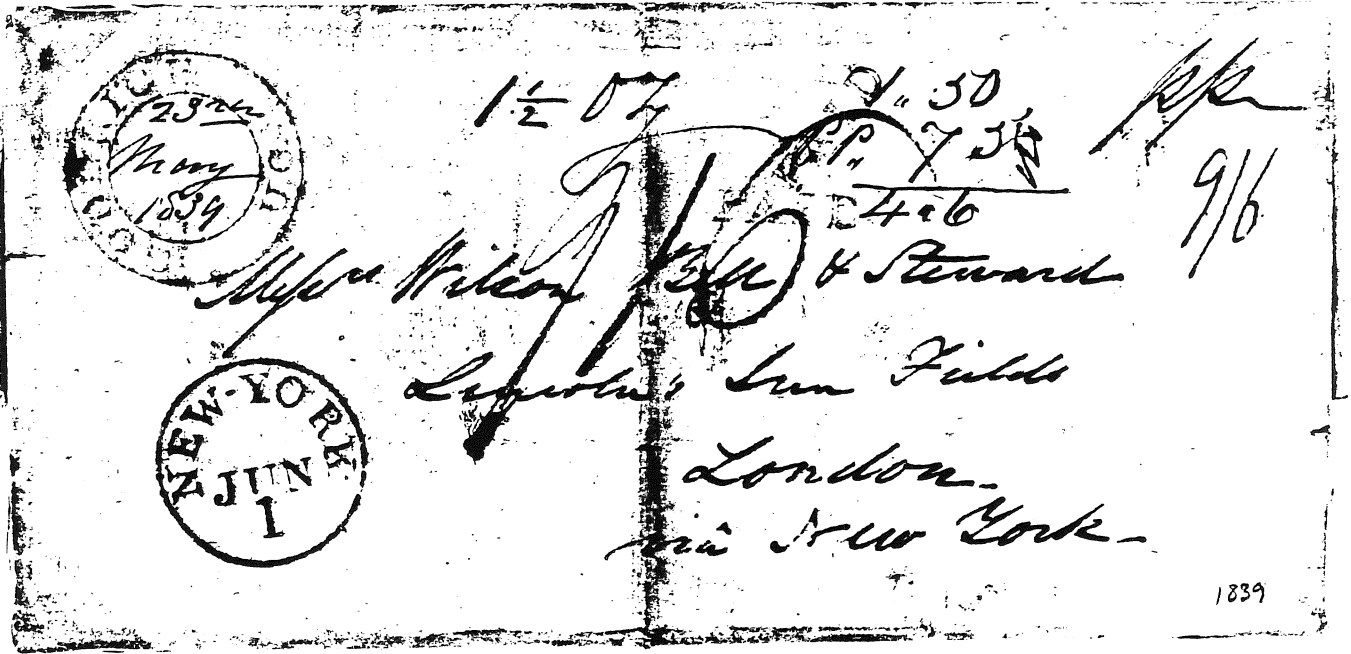 GODERICH U.C
23rd
May
1839
1 1/2 Oz
1,, 50
PP,,
4 " 6
pp
9/6
Messrs Wilson Bell & Steward
Lincoln's Inn Fields
London.
viâ New York -
NEW-YORK
JUN
1
1839